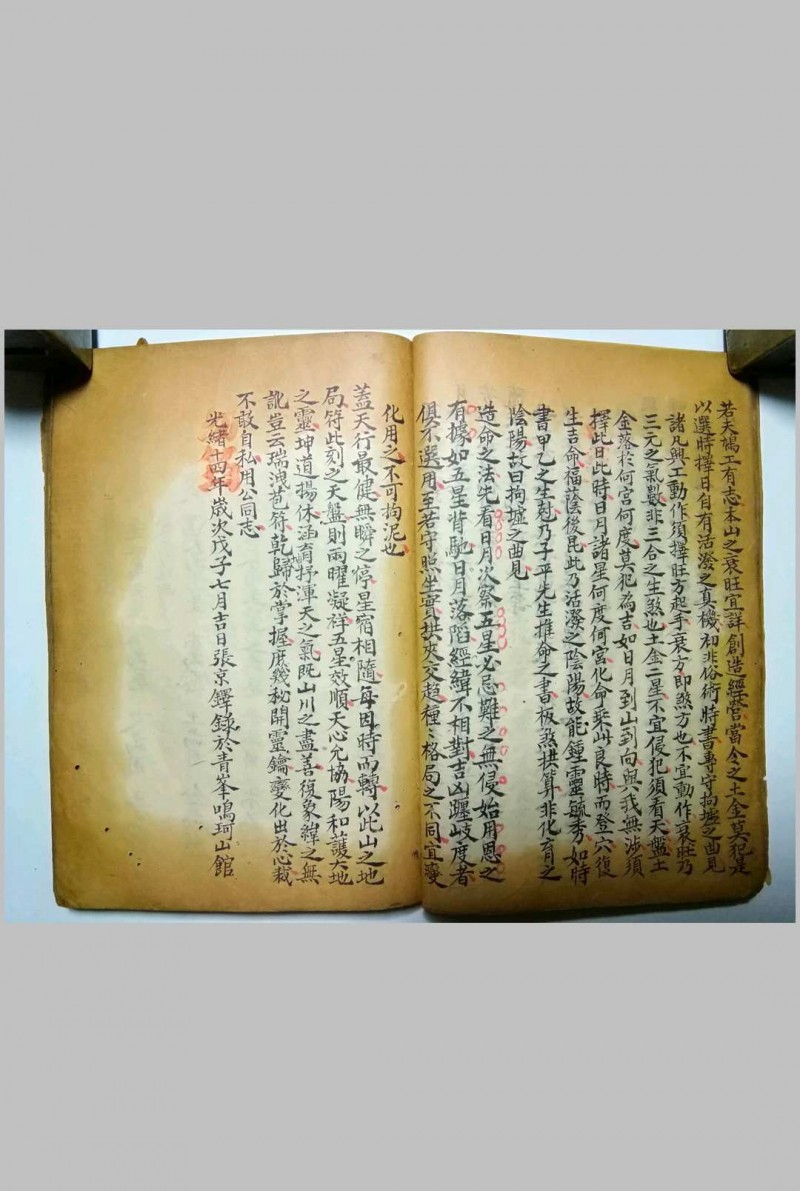 若夫鳩工有志本山之衰旺宜詳創造經營當令之土金莫犯是
以選時擇日自有活潑之真機初非俗術時書專守拘墟之曲見
諸凡興工動作須擇旺方起手衰方即煞方也不宜動作衰旺乃
三元之氣數非三合之生煞也土金二星不宜侵犯須看天盤土
金落於何宮何度莫犯為吉如日月到山到向與我無涉須
擇此日此時日月諸星何度何宮化命乘此良時而登穴復
生吉命福蔭後昆此乃活潑之陰陽故能鍾靈毓秀如時
書甲乙之生尅乃子平先生推命之書板煞拱算非化育之
陰陽故曰拘墟之曲見
造命之法先看日月次察五星必忌難之無侵始用恩之
有據如五星背馳日月落陷經緯不相對吉凶躔岐度者
俱不選用至若守照坐實拱夾交趨種種格局之不同宜變
化用之不可拘泥也
蓋天行最健無瞬之停星宿相隨每因時而轉以此山之地
局符此刻之天盤則兩曜凝祥五星效順天心允協陽和護大地
之靈坤道揚休涵育抒渾天之氣既山川之盡善復象緯之無
訛豈云瑞洩苞符乾歸於掌握庶幾秘開靈鑰變化出於心裁
不敢自私用公同志
光緒十四年歲次戊子七月吉日張京鐸錄於青峯鳴琦山館